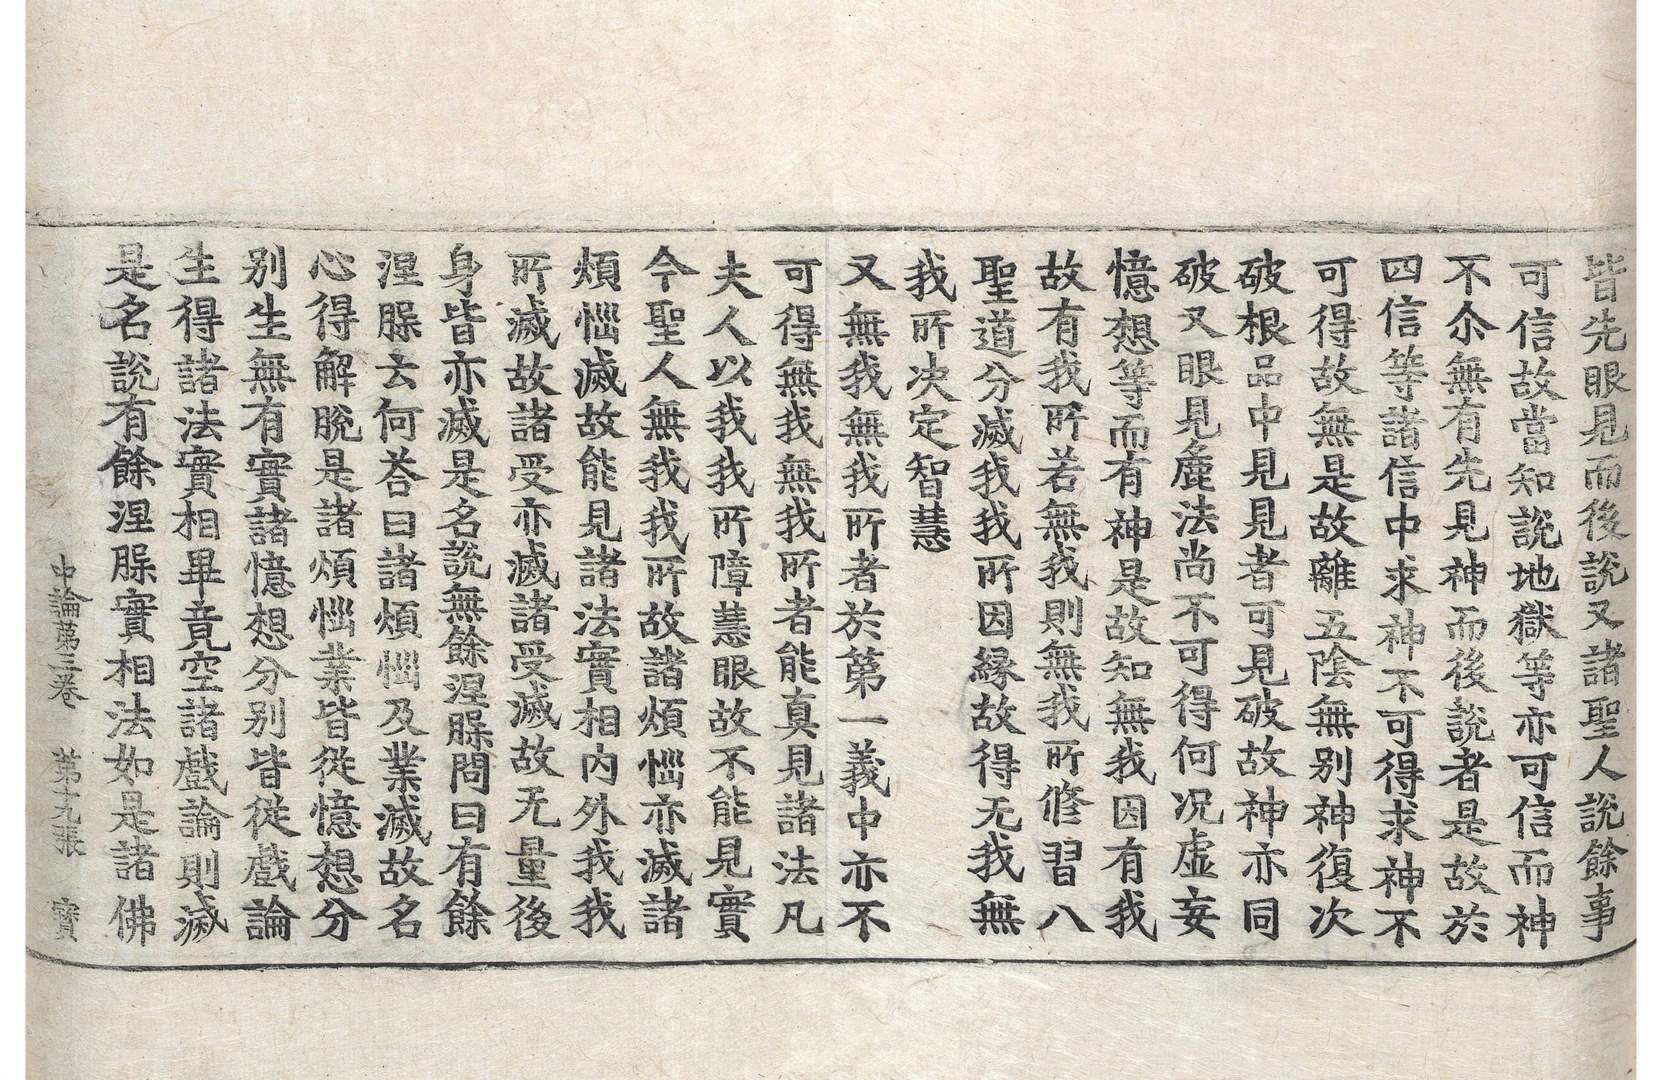 皆先眼見而後說又諸聖人說餘事
可信故當知說地獄等亦可信而神
不尒無有先見神而後說者是故於
四信等諸信中求神不可得求神不
可得故無是故離五陰無別神復次
破根品中見見者可見破故神亦同
破又眼見麁法尚不可得何况虛妄
憶想等而有神是故知無我因有我
故有我所若無我則無我所修習八
聖道分滅我我所因緣故得无我無
我所決定智慧
又無我無我所者於第一義中亦不
可得無我無我所者能真見諸法凡
夫人以我我所障慧眼故不能見實
今聖人無我我所故諸煩惱亦滅諸
煩惱滅故能見諸法實相內外我我
所滅故諸受亦滅諸受滅故无量後
身皆亦滅是名說無餘涅槃問曰有餘
涅槃云何荅曰諸煩惱及業滅故名
心得解脫是諸煩惱業皆從憶想分
別生無有實諸憶想分別皆從戲論
生得諸法實相畢竟空諸戲論則滅
是名說有餘涅槃實相法如是諸佛
中論第三卷 第十九張 寶